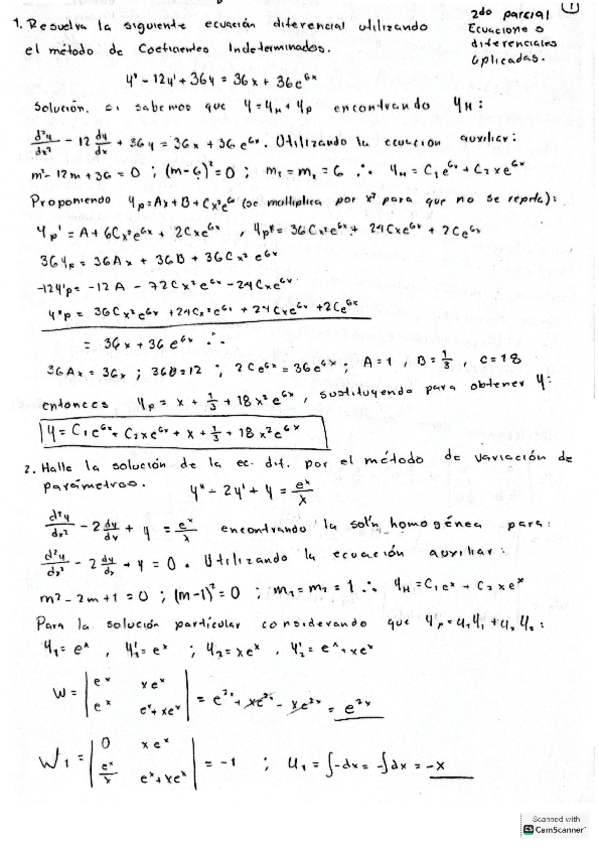 1. Resuelva la siguiente ecuación diferencial utilizando
el método de Coeficientes Indeterminados.
2do parcial
Ecuaciones
diferenciales
aplicadas.
1
y'' - 12y' + 36y = 36x + 36e^6x
Solución. Si sabemos que y = y_H + y_p encontrando y_H:
d²y/dx² - 12 dy/dx + 36y = 36x + 36e^6x. Utilizando la ecuación auxiliar:
m² - 12m + 36 = 0 ; (m-6)² = 0 ; m₁ = m₂ = 6 ∴ y_H = C₁e^6x + C₂xe^6x
Proponiendo y_p = Ax + B + Cx²e^6x (se multiplica por x² para que no se repita):
y_p' = A + 6Cx²e^6x + 2Cxe^6x , y_p'' = 36Cx²e^6x + 24Cxe^6x + 2Ce^6x
36y_p = 36Ax + 36B + 36Cx²e^6x
-12y'_p = -12A - 72Cx²e^6x - 24Cxe^6x
y''_p = 36Cx²e^6x + 24Cx²e^6x + 24Cxe^6x + 2Ce^6x
= 36x + 36e^6x ∴
36Ax = 36x ; 36B = 12 ; 2Ce^6x = 36e^6x ; A = 1 , B = 1/3 , C = 18
entonces y_p = x + 1/3 + 18x²e^6x , sustituyendo para obtener y:
y = C₁e^6x + C₂xe^6x + x + 1/3 + 18x²e^6x
2. Halle la solución de la ec. dif. por el método de variación de
parámetros. y'' - 2y' + y = e^x/x
d²y/dx² - 2 dy/dx + y = e^x/x encontrando la sol'n homogénea para:
d²y/dx² - 2 dy/dx + y = 0. Utilizando la ecuación auxiliar:
m² - 2m + 1 = 0 ; (m-1)² = 0 ; m₁ = m₂ = 1 ∴ y_H = C₁e^x + C₂xe^x
Para la solución particular considerando que y_p = u₁y₁ + u₂y₂:
y₁ = e^x , y₁' = e^x ; y₂ = xe^x , y₂' = e^x + xe^x
W = | e^x xe^x ; e^x e^x + xe^x | = e^2x + xe^2x - xe^2x = e^2x
W₁ = | 0 xe^x ; e^x/x e^x + xe^x | = -1 ; u₁ = ∫-dx = -∫dx = -x
Scanned with
CamScanner